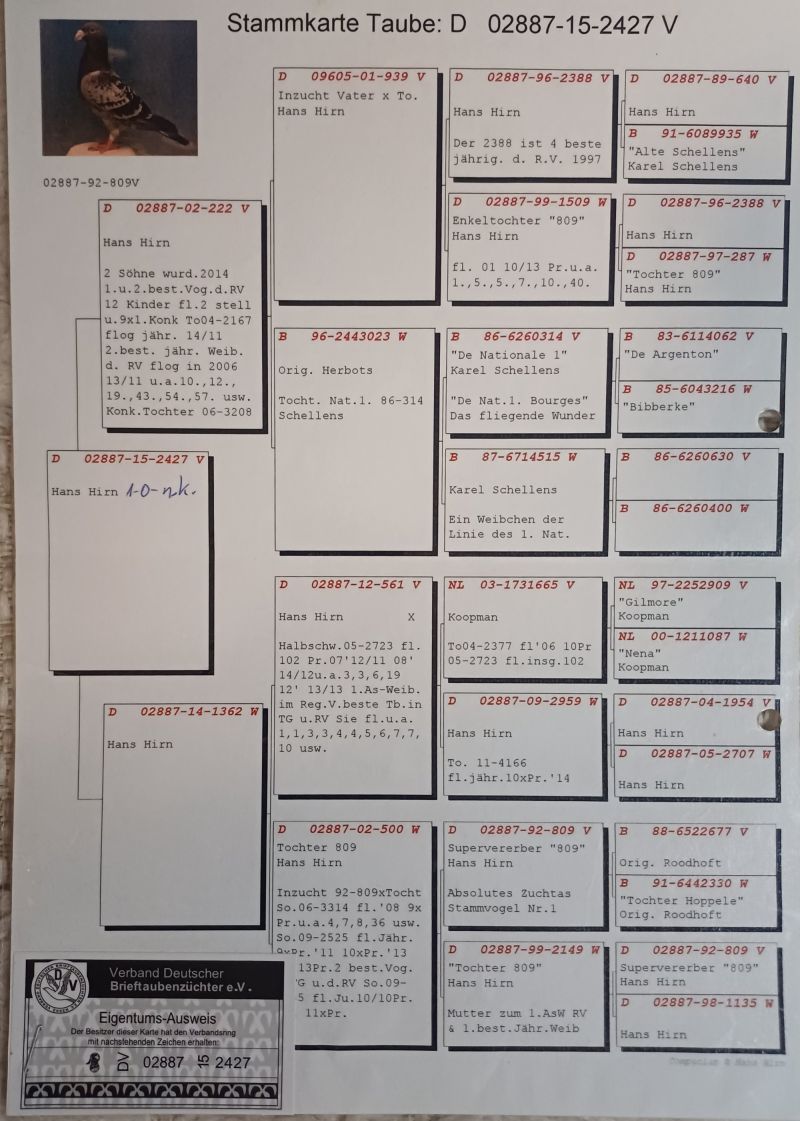 Stammkarte Taube: D 02887-15-2427 V
02887-92-809V
D 02887-15-2427 V
Hans Hirn 1-0-nk.
D 02887-02-222 V
Hans Hirn
2 Söhne wurd.2014
1.u.2.best.Vog.d.RV
12 Kinder fl.2 stell
u.9x1.Konk To04-2167
flog jähr. 14/11
2.best. jähr. Weib.
d. RV flog in 2006
13/11 u.a.10.,12.,
19.,43.,54.,57. usw.
Konk.Tochter 06-3208
D 02887-14-1362 W
Hans Hirn
D 09605-01-939 V
Inzucht Vater x To.
Hans Hirn
B 96-2443023 W
Orig. Herbots
Tocht. Nat.1. 86-314
Schellens
D 02887-12-561 V
Hans Hirn X
Halbschw.05-2723 fl.
102 Pr.07'12/11 08'
14/12u.a.3,3,6,19
12' 13/13 1.As-Weib.
im Reg.V.beste Tb.in
TG u.RV Sie fl.u.a.
1,1,3,3,4,4,5,6,7,7,
10 usw.
D 02887-02-500 W
Tochter 809
Hans Hirn
Inzucht 92-809xTocht
So.06-3314 fl.'08 9x
Pr.u.a.4,7,8,36 usw.
So.09-2525 fl.Jähr.
9xPr.'11 10xPr.'13
13Pr.2 best.Vog.
G u.d.RV So.09-
5 fl.Ju.10/10Pr.
11xPr.
D 02887-96-2388 V
Hans Hirn
Der 2388 ist 4 beste
jährig. d. R.V. 1997
D 02887-99-1509 W
Enkeltochter "809"
Hans Hirn
fl. 01 10/13 Pr.u.a.
1.,5.,5.,7.,10.,40.
B 86-6260314 V
"De Nationale 1"
Karel Schellens
"De Nat.1. Bourges"
Das fliegende Wunder
B 87-6714515 W
Karel Schellens
Ein Weibchen der
Linie des 1. Nat.
NL 03-1731665 V
Koopman
To04-2377 fl'06 10Pr
05-2723 fl.insg.102
D 02887-09-2959 W
Hans Hirn
To. 11-4166
fl.jähr.10xPr.'14
D 02887-92-809 V
Supervererber "809"
Hans Hirn
Absolutes Zuchtas
Stammvogel Nr.1
D 02887-99-2149 W
"Tochter 809"
Hans Hirn
Mutter zum 1.AsW RV
& 1.best.Jähr.Weib
D 02887-89-640 V
Hans Hirn
B 91-6089935 W
"Alte Schellens"
Karel Schellens
D 02887-96-2388 V
Hans Hirn
D 02887-97-287 W
"Tochter 809"
Hans Hirn
B 83-6114062 V
"De Argenton"
B 85-6043216 W
"Bibberke"
B 86-6260630 V
B 86-6260400 W
NL 97-2252909 V
"Gilmore"
Koopman
NL 00-1211087 W
"Nena"
Koopman
D 02887-04-1954 V
Hans Hirn
D 02887-05-2707 W
Hans Hirn
B 88-6522677 V
Orig. Roodhoft
B 91-6442330 W
"Tochter Hoppele"
Orig. Roodhoft
D 02887-92-809 V
Supervererber "809"
Hans Hirn
D 02887-98-1135 W
Hans Hirn
Verband Deutscher
Brieftaubenzüchter e.V.
Eigentums-Ausweis
Der Besitzer dieser Karte hat den Verbandsring
mit nachstehenden Zeichen erhalten:
DV 02887 15 2427